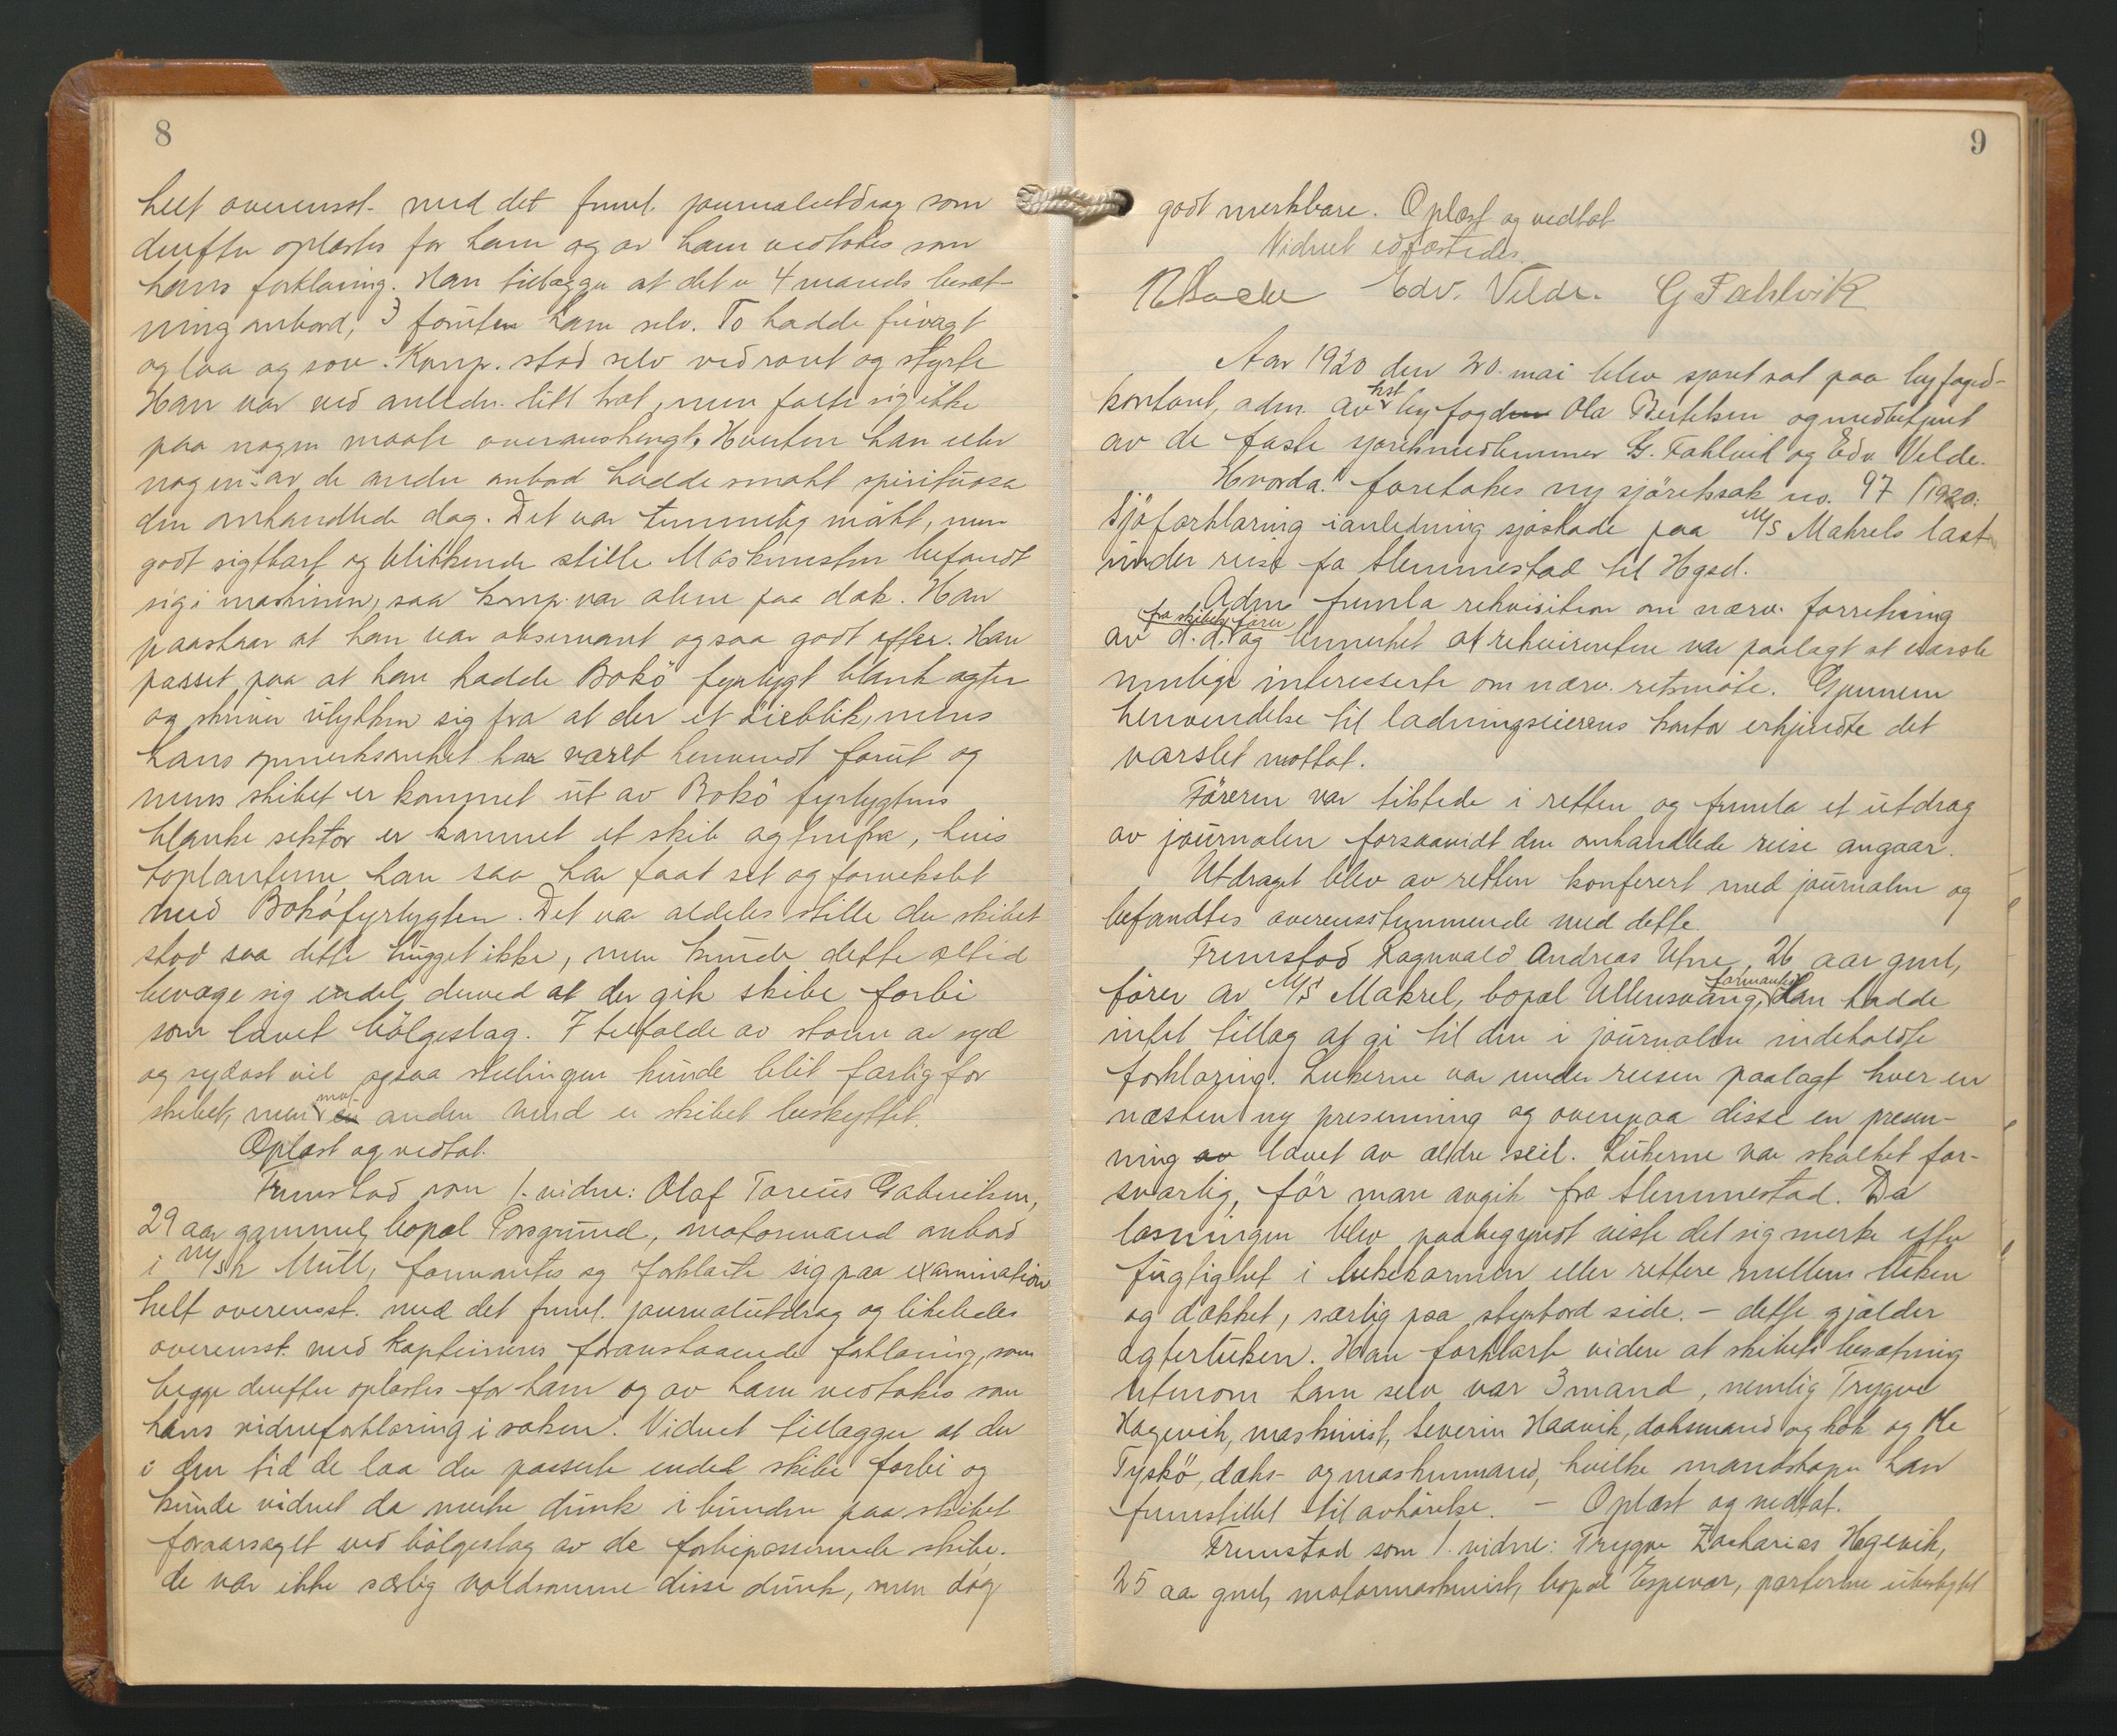 8
helt overensst. med det freml. journalutdrag som
derefter oplæstes for ham og av ham vedtokes som
hans forklaring. Han tilægger at det er 4 mands besæt-
ning ombord, 3 foruten ham selv. To hadde frivagt
og laa og sov. Komp. stod selv ved roret og styrte
Han var ved anledn. litt træt, men følte sig ikke
paa nogen maate overanstrengt. Hverken han eller
nogen av de andre ombord hadde smakt spirituosa
den omhandlede dag. Det var temmelig mørkt, men
godt sigtbart og blikkende stille. Maskinisten befandt
sig i maskinen, saa komp. var alene paa dæk. Han
paastaar at han var observant og saa godt efter. Han
passet paa at han hadde Bokö fyrlygt blank agter
og skriver ulykken sig fra at der et øieblik, mens
hans opmerksomhet har været henvendt forut og
mens skibet er kommet ut av Bokö fyrlygtens
blanke sektor er kommet et skib agtenfra, hvis
toplanterne han saa har faat set og forvekslet
med Boköfyrlygten. Det var aldeles stille der skibet
stod saa dette hugget ikke, men kunde dette altid
bevæge sig endel derved at der gik skibe forbi
som lavet bölgeslag. I tilfælde av storm av syd
og sydost vil ogsaa stillingen kunde blit farlig for
skibet, men mot en anden vind er skibet beskyttet.
Oplæst og vedtat.
Fremstod som 1. vidne: Olaf Tareus Gabrielsen,
29 aar gammel, bopæl Porsgrund, motormand ombord
i M/Sk Mull, formantes og forklarte sig paa examination
helt overensst. med det freml. journalutdrag og likeledes
overensst. med kapteinens foranstaaende forklaring, som
begge derefter oplæstes for ham og av ham vedtokes som
hans vidneforklaring i saken. Vidnet tillægger at der
i den tid de laa der passerte endel skibe forbi og
kunde vidnet da merke dunk i bunden paa skibet
foraarsaget ved bölgeslag av de forbipasserende skibe.
de var ikke særlig voldsomme disse dunk, men dog
9
godt merkbare. Oplæst og vedtat
Vidnet edfæstedes.
Edv. Velde. G Fahlvik
Aar 1920 den 20. mai blev sjöret sat paa byfoged-
kontoret, adm. av kst byfogden Ola Bertelsen og medbetjent
av de faste sjöretsmedlemmer G. Fahlvik og Edv Velde.
Hvorda: foretokes ny sjöretssak no. 97/1920.
Sjöforklaring i anledning sjöskade paa M/S Makrels last
under reise fra Slemmestad til Hgsd.
Adm fremla rekvisition om nærv. forretning
av d.d. fra skibets förer og bemerket at rekvirenten var paalagt at varsle
mulige interesserte om nærv. retsmöte. Gjennem
henvendelse til ladningseierens kontor erkjendte det
varslet mottat.
Föreren var tilstede i retten og fremla et utdrag
av journalen forsaavidt den omhandlede reise angaar.
Utdraget blev av retten konferert med journalen og
befandtes overensstemmende med dette.
Fremstod Ragnvald Andreas Utne, 26 aar gml,
förer av M/S Makrel, bopæl Ullensvang, formantet Han hadde
intet tillæg at gi til den i journalen indeholdte
forklaring. Lukerne var under reisen paalagt hver en
næsten ny presenning og ovenpaa disse en presen-
ning av lavet av ældre seil. Lukerne var skalket for-
svarlig, för man avgik fra Slemmestad. Da
losningen blev paabegyndt viste det sig merke efter
fugtighet i lukekarmen eller rettere mellem luken
og dækket, særlig paa styrbord side. - dette gjælder
agterluken. Han forklarte videre at skibets besætning
utenom ham selv var 3 mand, nemlig Trygve
Hagevik, maskinist, Severin Haavik, dæksmand og kok og Ole
Tyskö, dæks- og maskinmand, hvilke mandskaper han
fremstillet til avhörelse. - Oplæst og vedtat.
Fremstod som 1. vidne: Trygve Zacharias Hagevik,
25 aar gml, motormaskinist, bopæl Espevær, parterne ubeslegtet